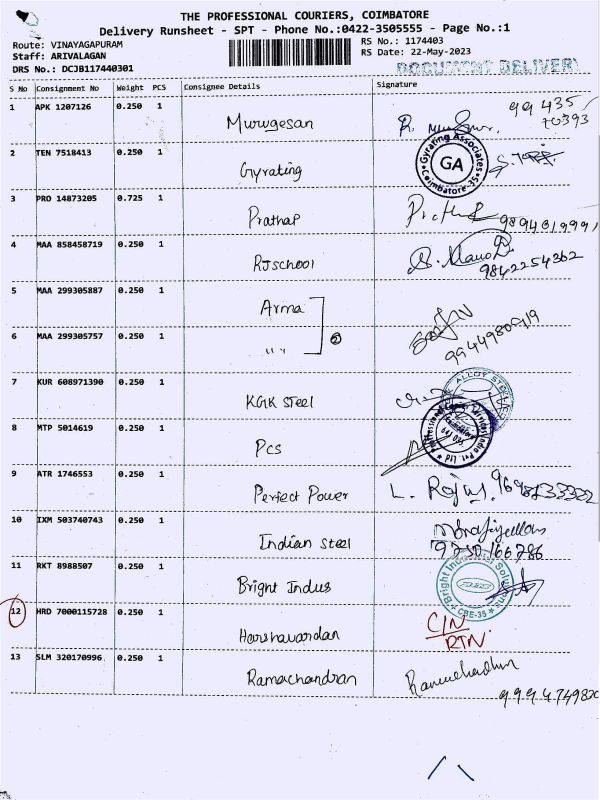 THE PROFESSIONAL COURIERS, COIMBATORE
Delivery Runsheet - SPT - Phone No.:0422-3505555 - Page No.:1
Route: VINAYAGAPURAM
RS No.: 1174403
Staff: ARIVALAGAN
RS Date: 22-May-2023
DRS No.: DCJB117440301
DOCUMENT DELIVERY
S No Consignment No Weight PCS Consignee Details Signature
1 APK 1207126 0.250 1 Murugesan 99 435/
70393
2 TEN 7518413 0.250 1 Gyrating
Gyrating Associates
GA
Coimbatore-35
3 PRO 14873205 0.725 1 Prathap
4 MAA 858458719 0.250 1 RJschool
9842254362
5 MAA 299305887 0.250 1 Arma
6 MAA 299305757 0.250 1 " "
②
7 KUR 608971390 0.250 1 KGK Steel
ALLOY
8 MTP 5014619 0.250 1 Pcs
9 ATR 1746553 0.250 1 Perfect Power L.
10 IXM 503740743 0.250 1 Indian Steel
9750166786
11 RKT 8988507 0.250 1 Bright Indus
CBE-35
12 HRD 7000115728 0.250 1 Harshavardan C/N
RTN.
13 SLM 320170996 0.250 1 Ramachandran